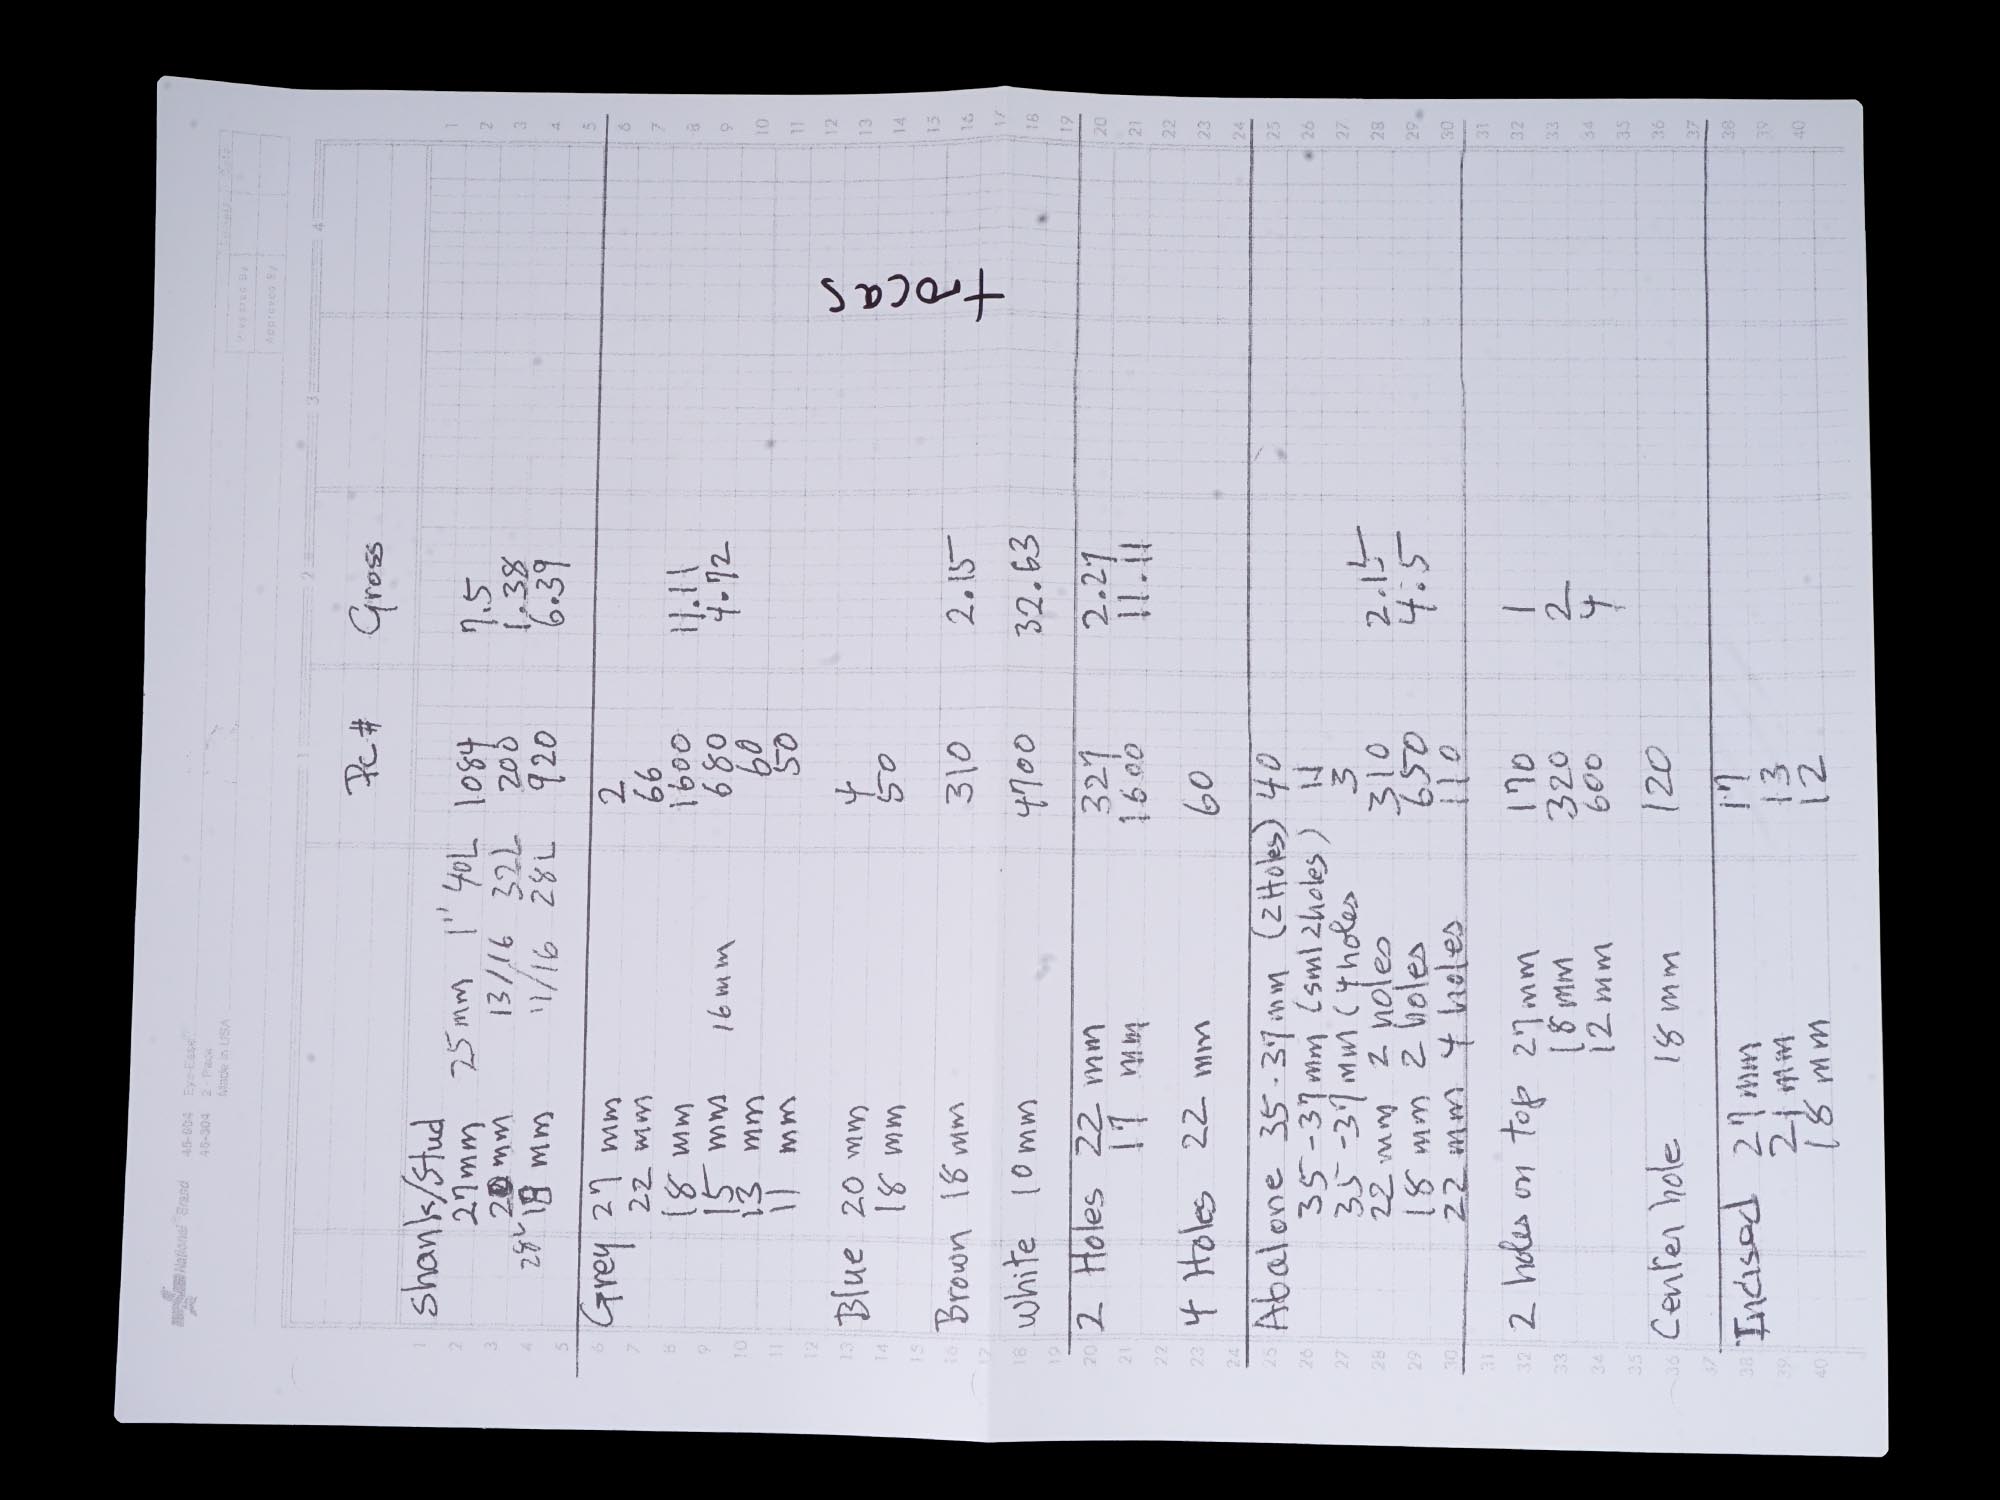 National Brand 45-604 Eye-Ease
45-304 2-Pack
Made in USA
Prepared By
Approved By
1 2 3 4
Pc# Gross
Shank/Stud
27mm 25mm 1" 40L 1084 7.5
20mm 13/16 32L 200 1.38
28L 18 mm 11/16 28L 920 6.39
Grey 27 mm 2
22 mm 66
18 mm 1600 11.11
15 mm 16mm 680 4.72
13 mm 60
11 mm 50
Blue 20 mm 4
18 mm 50
Brown 18mm 310 2.15
White 10mm 4700 32.63
2 Holes 22 mm 327 2.27
17 mm 1600 11.11
4 Holes 22 mm 60
Abalone 35-37mm (2 Holes) 40
35-37mm (sml 2holes) 11
35-37mm (4 holes 3
22 mm 2 holes 310 2.15
18 mm 2 holes 650 4.5
22 mm 4 holes 110
2 holes on top 27mm 170 1
18 mm 320 2
12 mm 600 4
Center hole 18mm 120
Incised 27mm 17
21mm 13
18mm 12
trocas